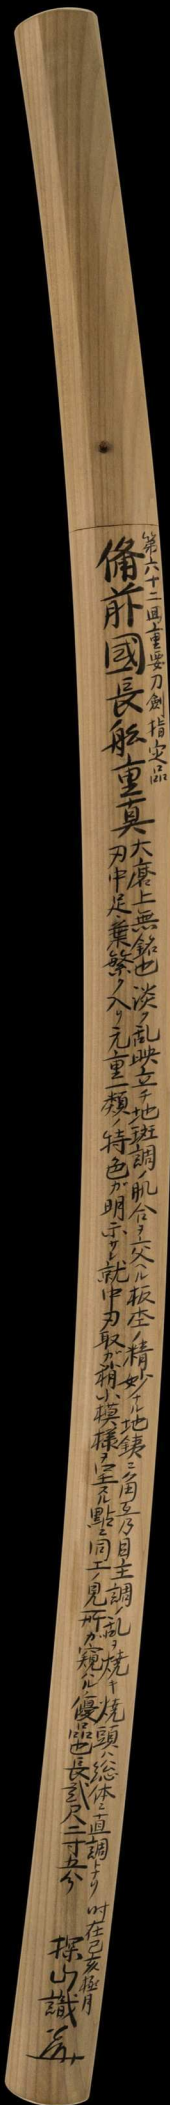 第六十二回重要刀劍指定品
備前國長舩重真
大磨上無銘也 淡ク乱映立チ地斑調ノ肌合ヲ交ヘル板杢ノ精妙ナル地鉄ニ角互乃目主調ノ乱ヲ焼キ焼頭ハ総体ニ直調トナリ
刃中足葉繁ク入リ元重一類ノ特色ガ明示サレ就中刃取ガ稍小模様ヲ呈スル點ニ同工ノ見所ガ窺ヘル優品也 長弐尺二寸五分
時在己亥極月
探山識